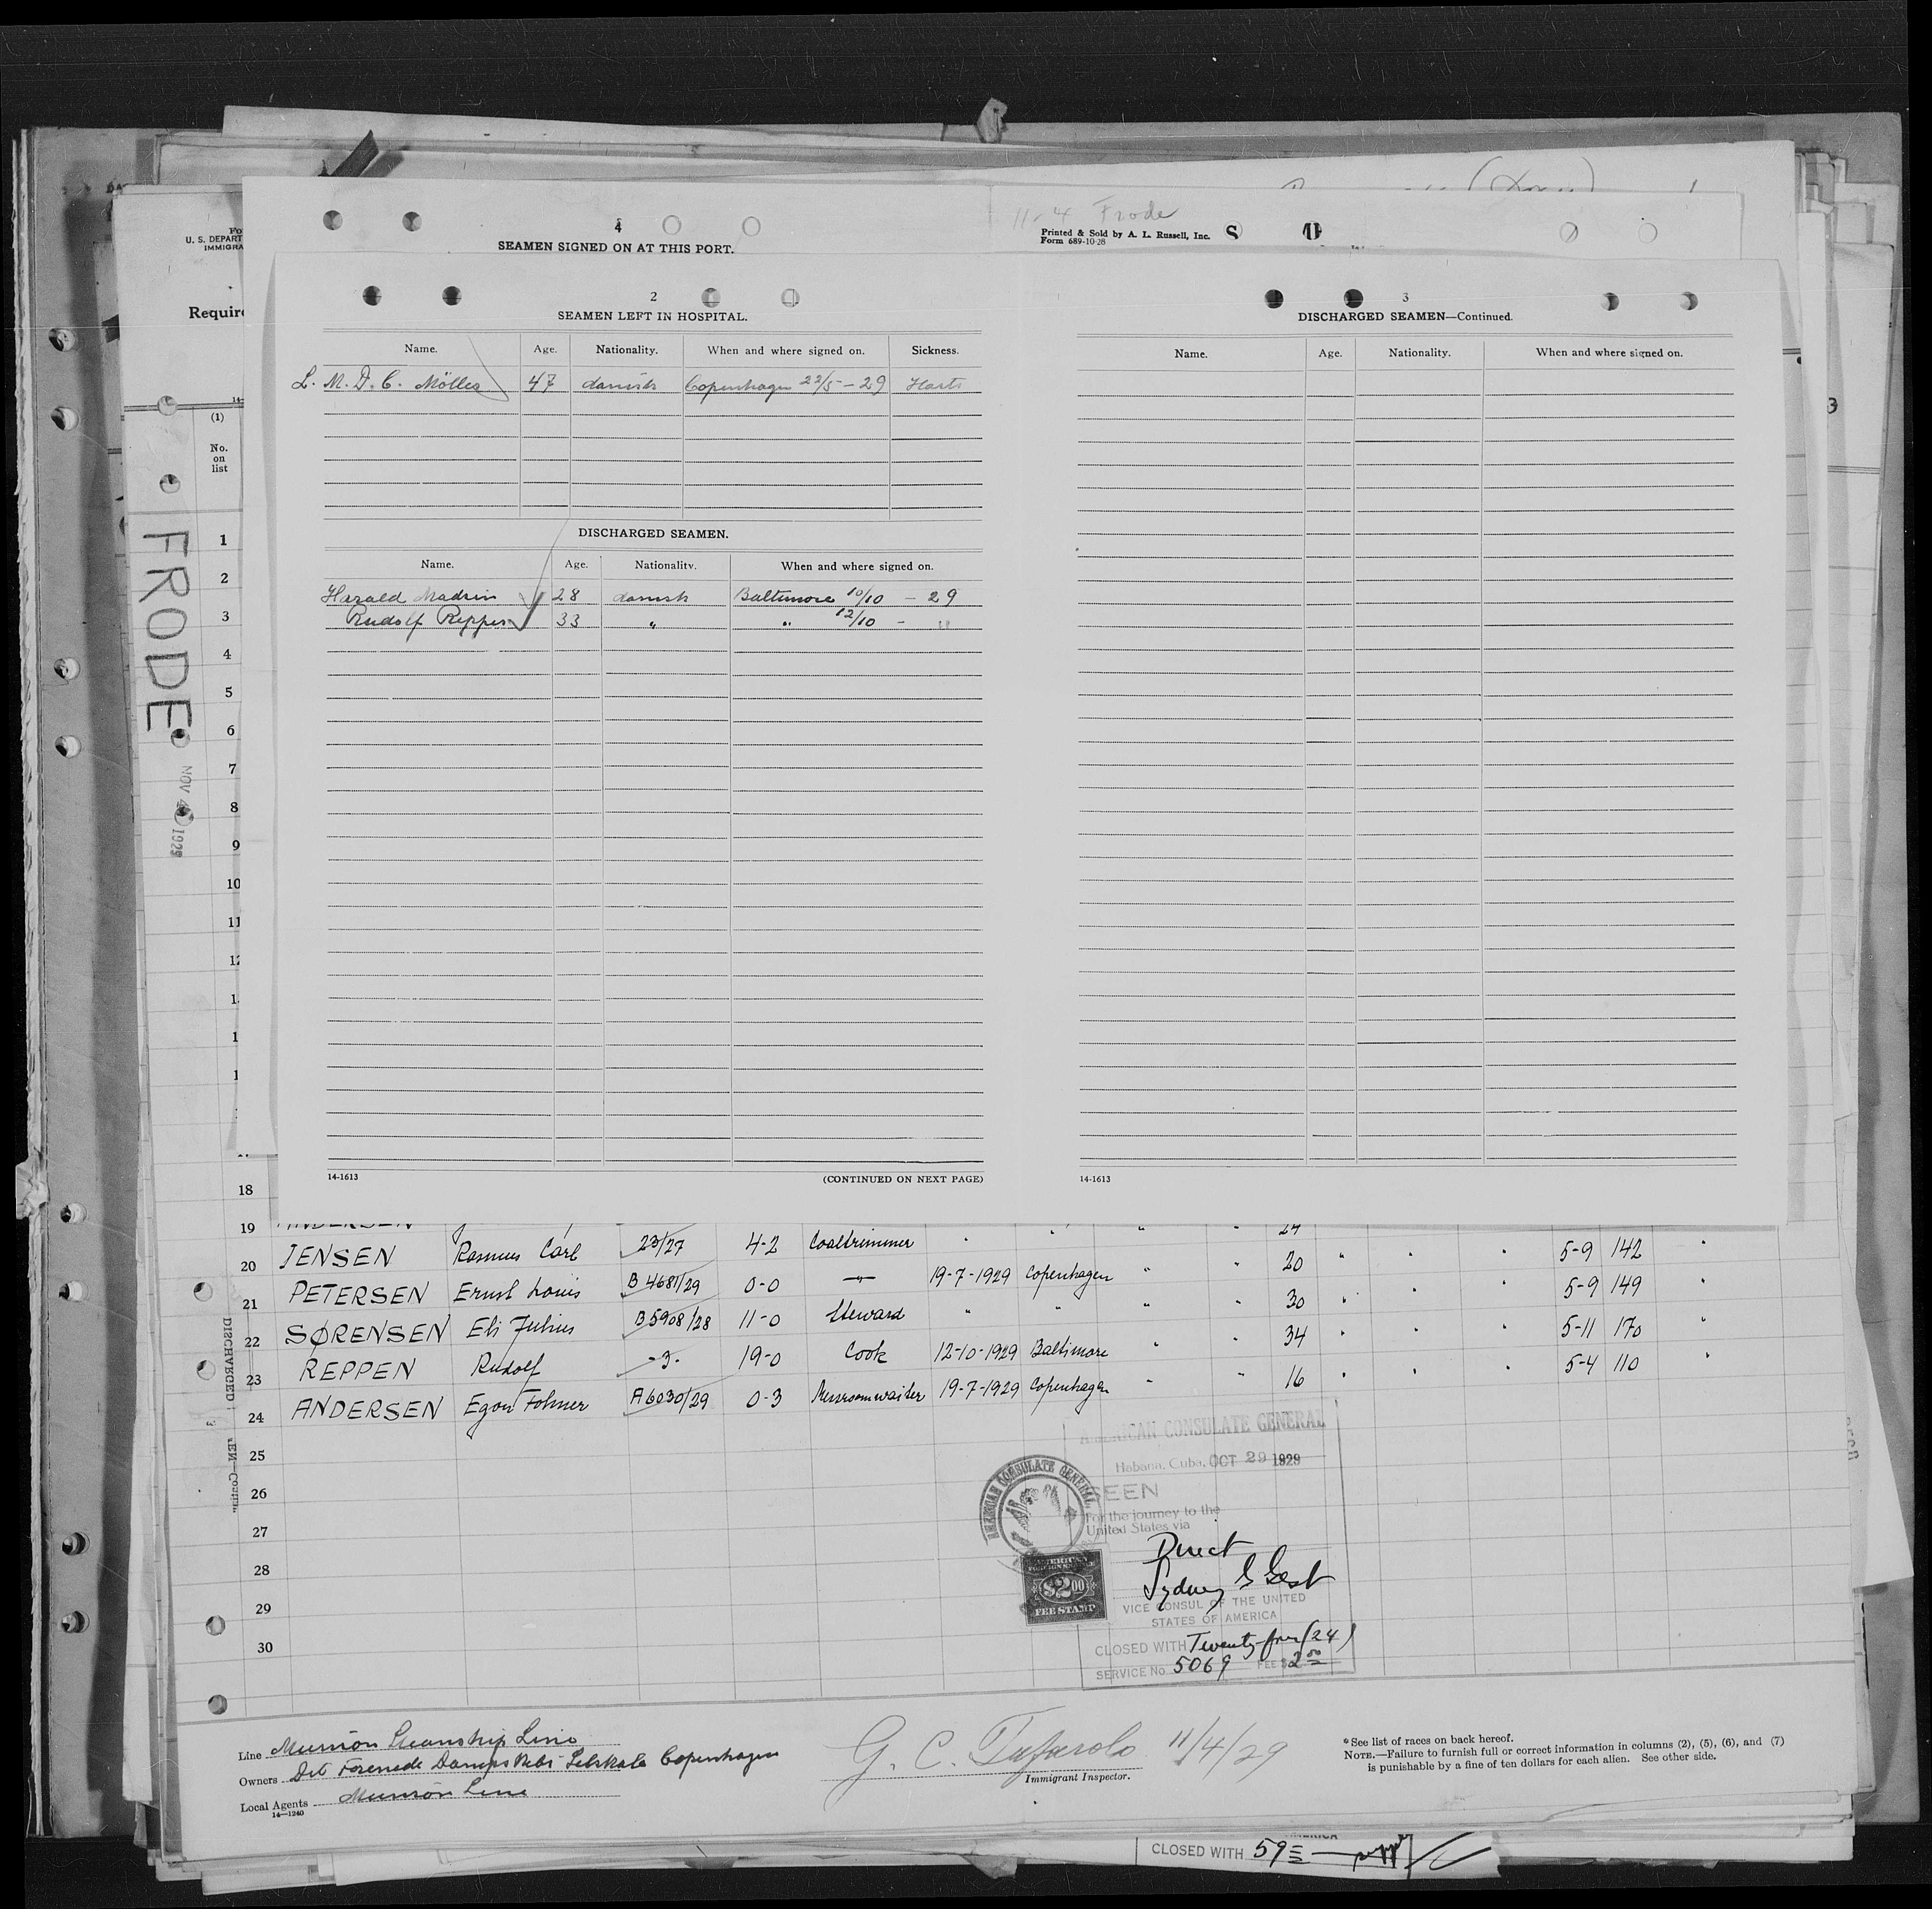 11-4 Frode
4
SEAMEN SIGNED ON AT THIS PORT.
Printed & Sold by A. L. Russell, Inc.
Form 689-10-28
U. S. DEPART
IMMIGRA
Require
(1)
No.
on
list
FRODE
NOV 4 1929
2
SEAMEN LEFT IN HOSPITAL.
Name. Age. Nationality. When and where signed on. Sickness.
L. M. D. C. Möller 47 danish Copenhagen 22/5 - 29
DISCHARGED SEAMEN.
Name. Age. Nationality. When and where signed on.
Harald 28 danish Baltimore 10/10 - 29
Rudolf Reppen 33 " " 12/10 - "
14-1613 (CONTINUED ON NEXT PAGE)
3
DISCHARGED SEAMEN—Continued.
Name. Age. Nationality. When and where signed on.
14-1613
1
2
3
4
5
6
7
8
9
10
11
18
19 ANDERSEN 24
20 JENSEN Rasmus Carl 23/27 4-2 Coaltrimmer " " " " 20 " " " 5-9 142 "
21 PETERSEN Ernst Louis B 4681/29 0-0 —"— 19-7-1929 Copenhagen " " 30 " " " 5-9 149
22 SØRENSEN Eli Julius B 5908/28 11-0 Steward " " " " 34 " " " 5-11 170 "
23 REPPEN Rudolf 19-0 Cook 12-10-1929 Baltimore " " 16 " " " 5-4 110 "
24 ANDERSEN Egon A6030/29 0-3 Messroomwaiter 19-7-1929 Copenhagen
25
26
27
28
29
30
DISCHARGED
AMERICAN CONSULATE GENERAL
Habana, Cuba, OCT 29 1929
SEEN
For the journey to the
United States via
Direct
Sydney G Gest
VICE CONSUL OF THE UNITED
STATES OF AMERICA
CLOSED WITH Twenty-four (24)
SERVICE No. 5069 FEE $2.00
AMERICAN CONSULATE GENERAL
AMERICAN
FOREIGN SERVICE
$2.00
FEE STAMP
Line Munson Steamship Line
Owners Det Forenede Dampskibs Selskab Copenhagen
Local Agents Munson Line
14—1240
G. C. Tafarolo 11/4/29
Immigrant Inspector.
* See list of races on back hereof.
NOTE.—Failure to furnish full or correct information in columns (2), (5), (6), and (7)
is punishable by a fine of ten dollars for each alien. See other side.
CLOSED WITH 59